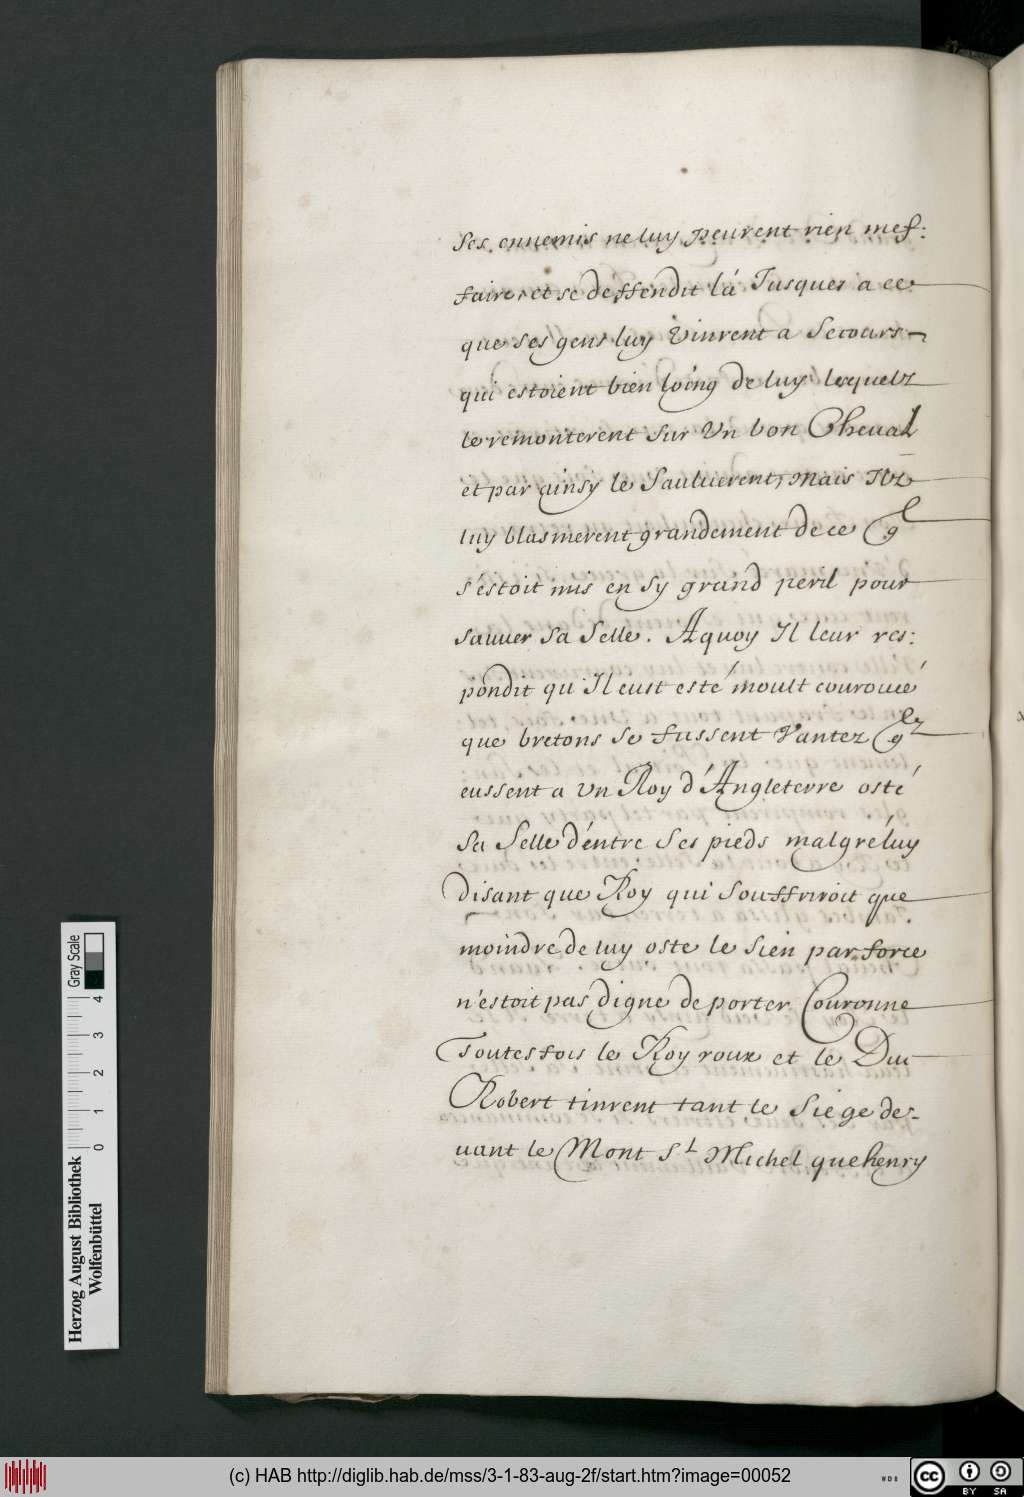 ses ennemis ne luy peurent rien mef:
faire, et se deffendit là Jusques a ce
que ses gens luy Vinrent a Secours
qui estoient bien loing de luy lesquelz
le remonterent sur Un bon Cheual
et par ainsy le Sauluerent, mais Ilz
luy blasmerent grandement de ce ql
s'estoit mis en sy grand peril pour
sauuer sa Selle. Aquoy Il leur res:
pondit qu'Il eust esté moult courouié
que bretons se fussent Vantez qlz
eussent a Un Roy d'Angleterre osté
sa Selle d'entre ses pieds malgré luy
disant que Roy qui Souffriroit que
moindre de luy oste le sien par force
n'estoit pas digne de porter Couronne
Toutesfois le Roy roux et le Duc
Robert tinrent tant le Siege de-
uant le Mont St Michel que henry
Herzog August Bibliothek
Wolfenbüttel
0 1 2 3 4
Gray Scale
(c) HAB http://diglib.hab.de/mss/3-1-83-aug-2f/start.htm?image=00052
WDB
cc BY SA